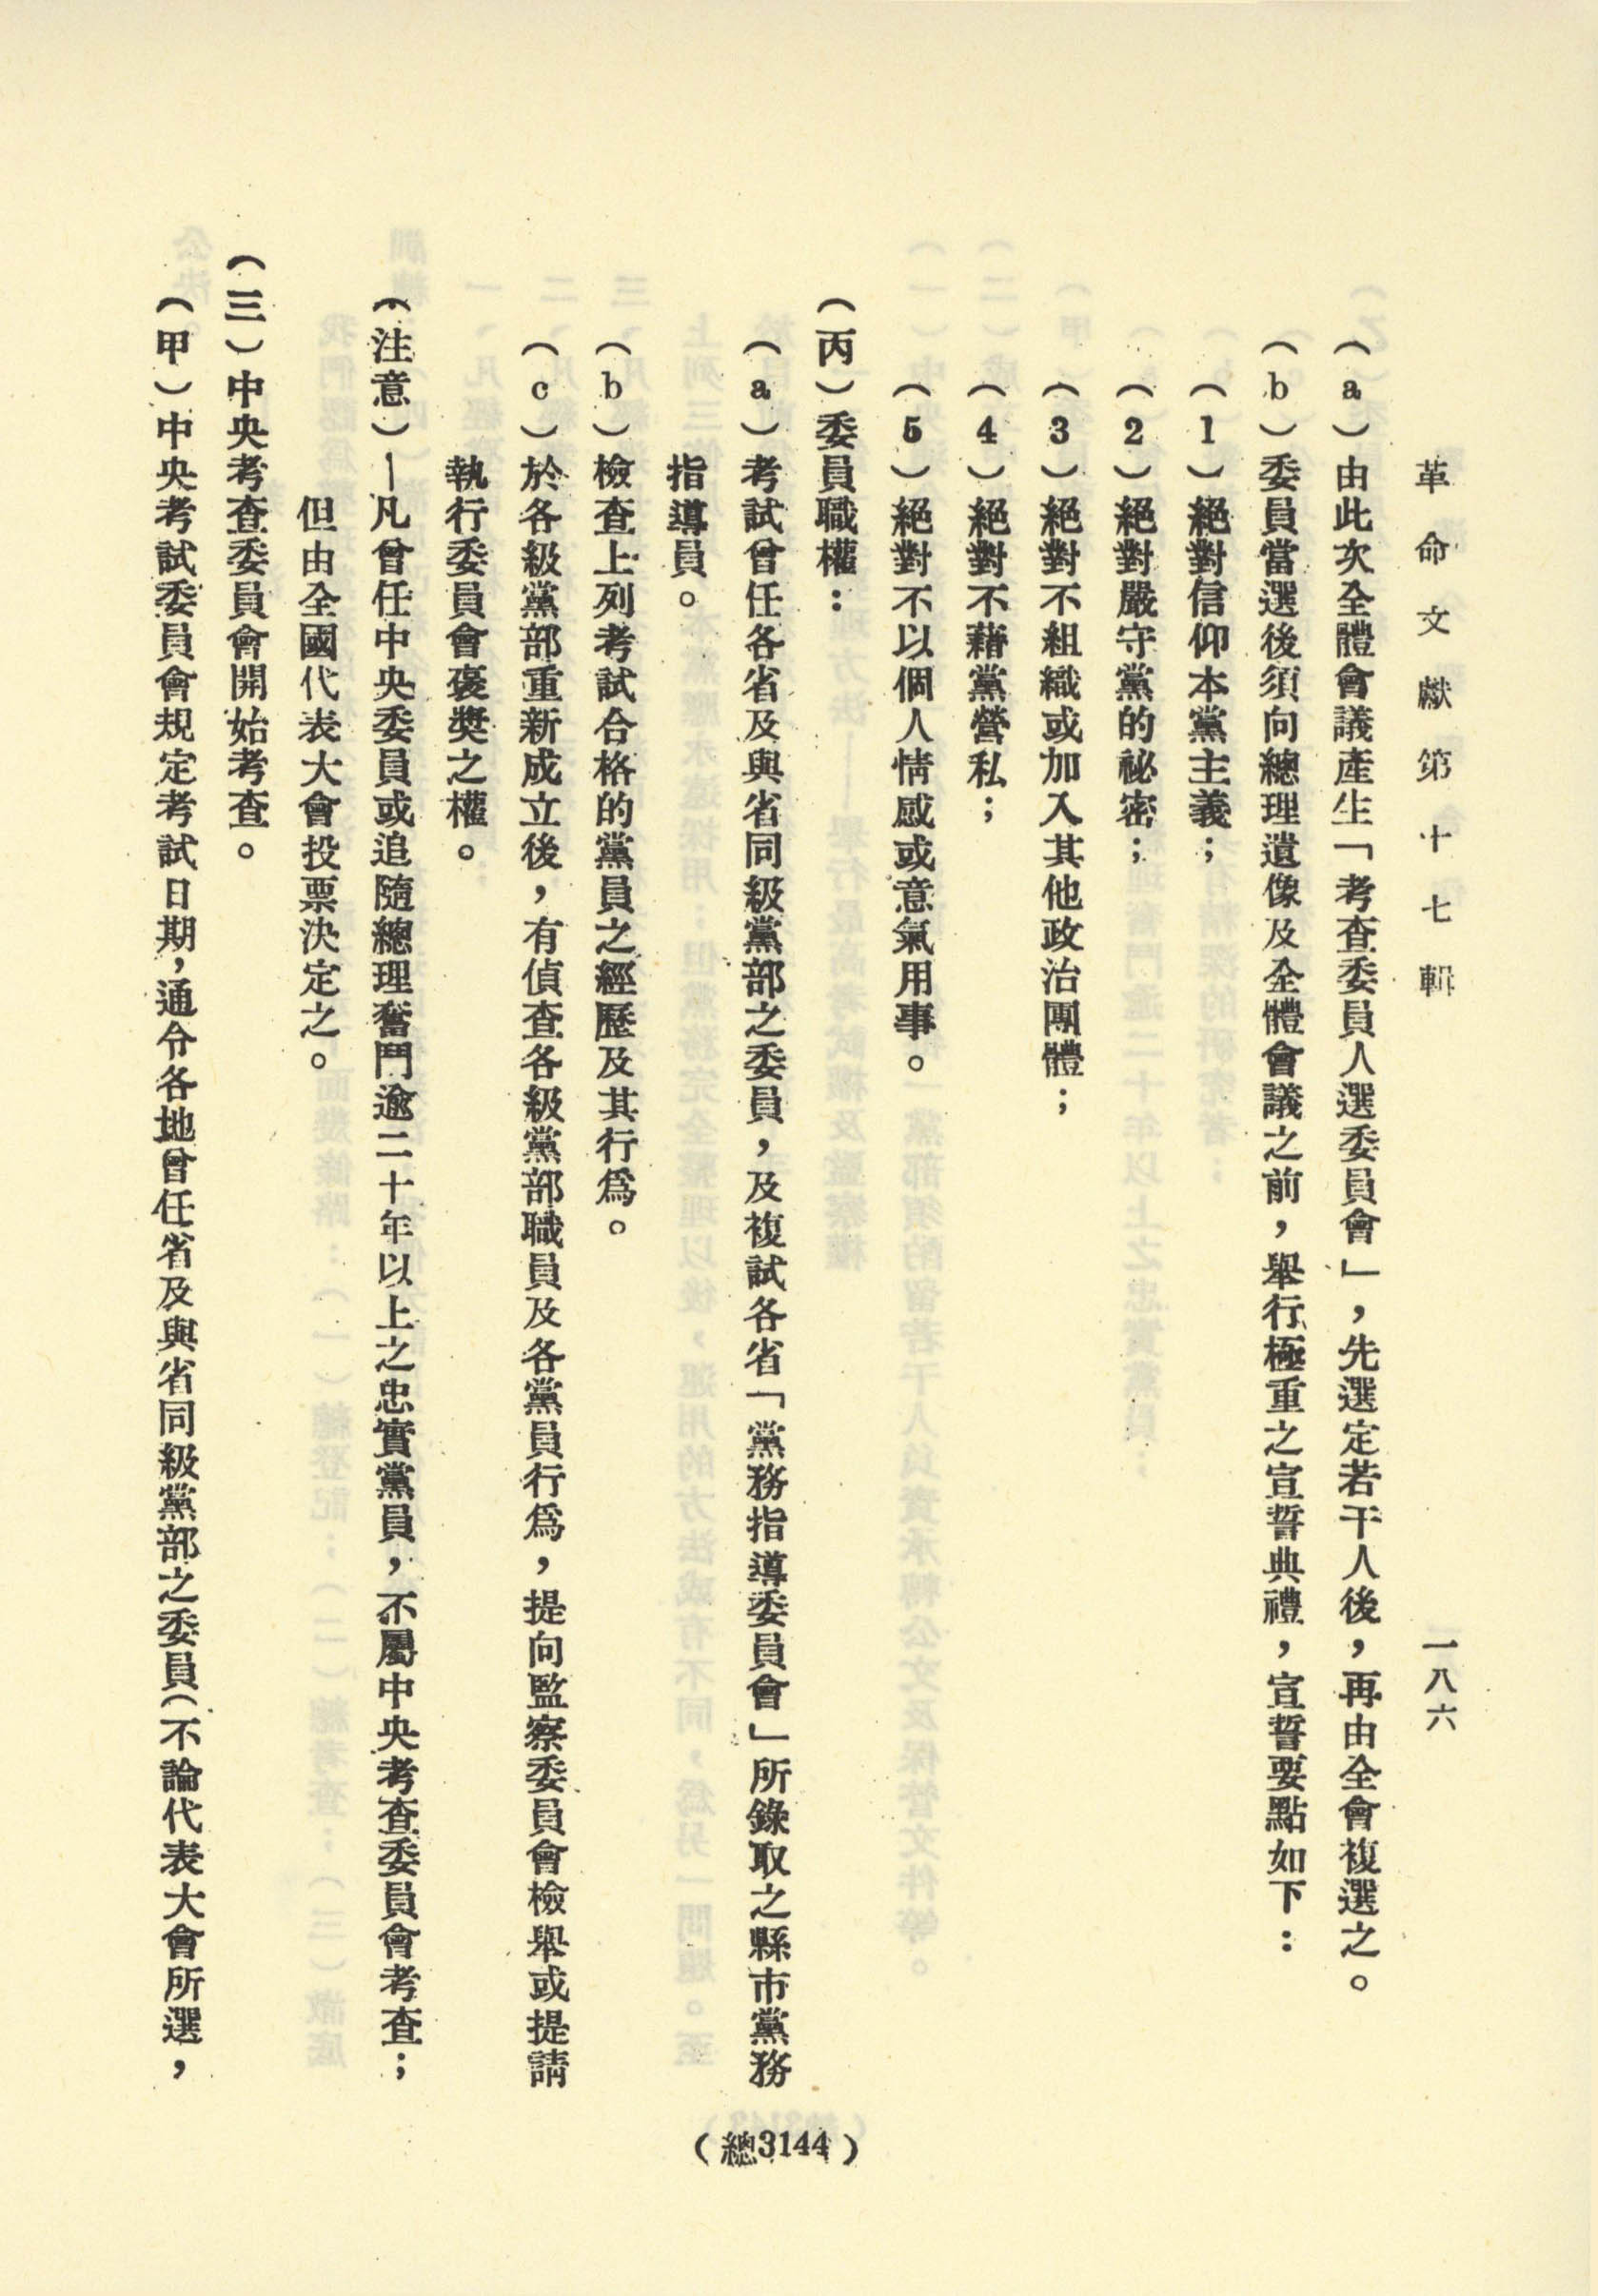 革命文獻第十七輯
一八六
（a）由此次全體會議產生「考查委員人選委員會」，先選定若干人後，再由全會複選之。
（b）委員當選後須向總理遺像及全體會議之前，舉行極重之宣誓典禮，宣誓要點如下：
（1）絕對信仰本黨主義；
（2）絕對嚴守黨的祕密；
（3）絕對不組織或加入其他政治團體；
（4）絕對不藉黨營私；
（5）絕對不以個人情感或意氣用事。
（丙）委員職權：
（a）考試曾任各省及與省同級黨部之委員，及複試各省「黨務指導委員會」所錄取之縣市黨務
指導員。
（b）檢查上列考試合格的黨員之經歷及其行爲。
（c）於各級黨部重新成立後，有偵查各級黨部職員及各黨員行爲，提向監察委員會檢舉或提請
執行委員會褒獎之權。
（注意）—凡曾任中央委員或追隨總理奮鬥逾二十年以上之忠實黨員，不屬中央考查委員會考查；
但由全國代表大會投票決定之。
（三）中央考查委員會開始考查。
（甲）中央考試委員會規定考試日期，通令各地曾任省及與省同級黨部之委員（不論代表大會所選，
（總3144）